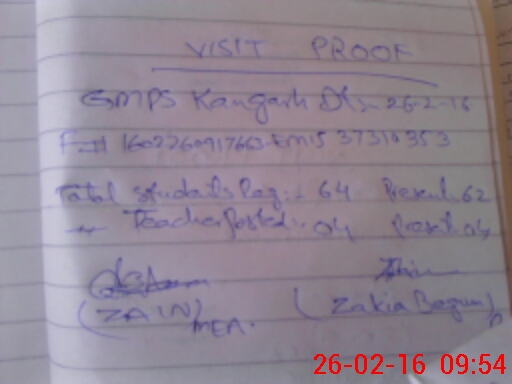 VISIT PROOF
GMPS Kangarh Dt:- 26-2-16
160226091766 EMIS 37310353
Total Students Reg:- 64 Present 62
-"- Teacher Posted:- 04 Present 04
(ZAIN) MEA.
(Zakia Begum)
26-02-16 09:54